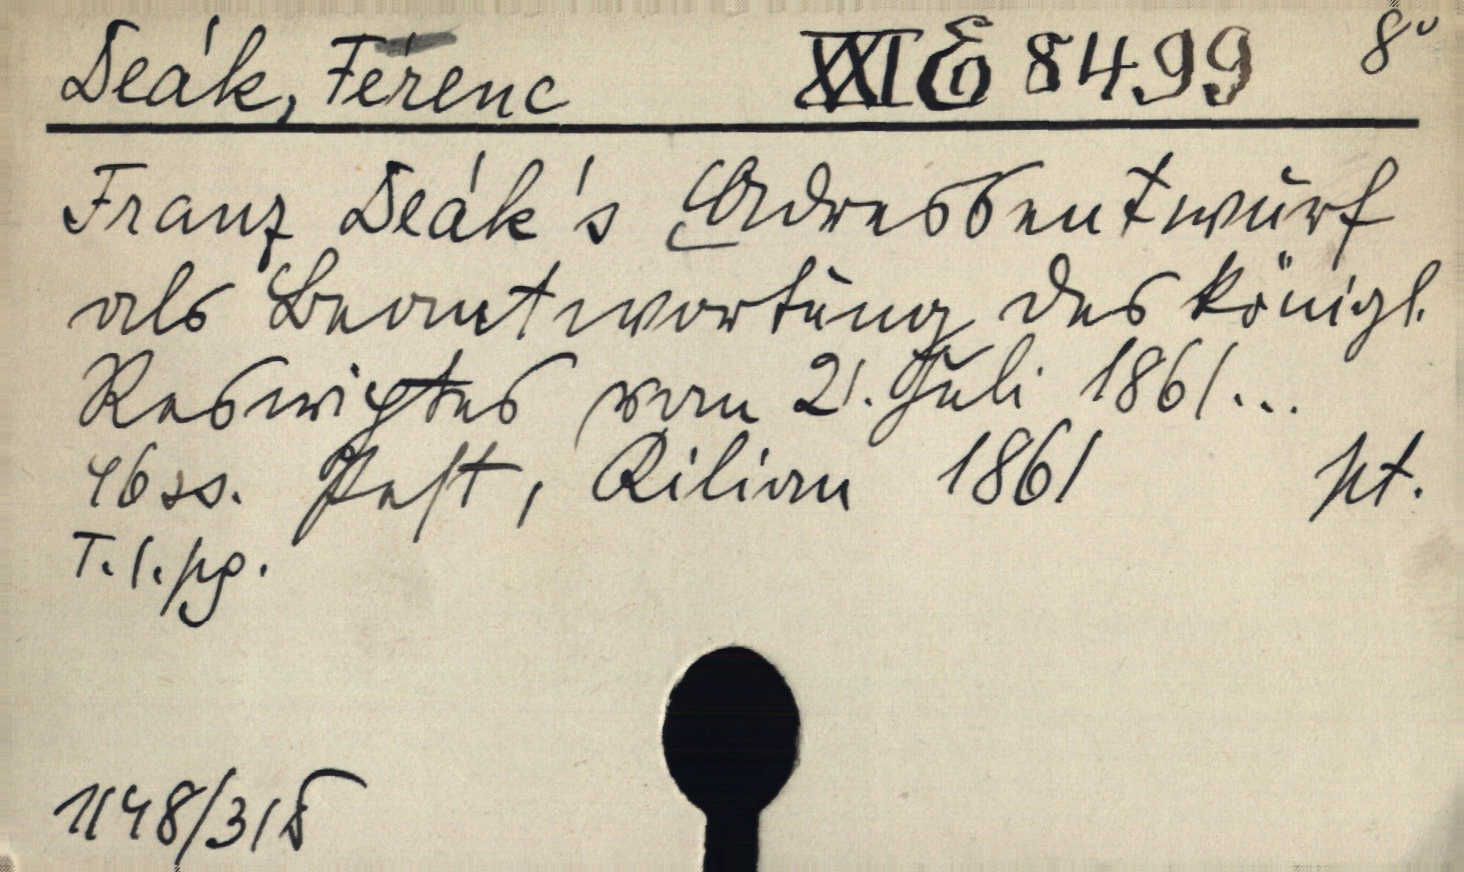 Deák, Ferenc XXI E 8499 8°
Franz Deák's Adressentwurf
als Beantwortung des königl.
Rescriptes vom 21. Juli 1861...
46 ss. Pest, Kilian 1861 pt.
T.l.pg.
1148/315